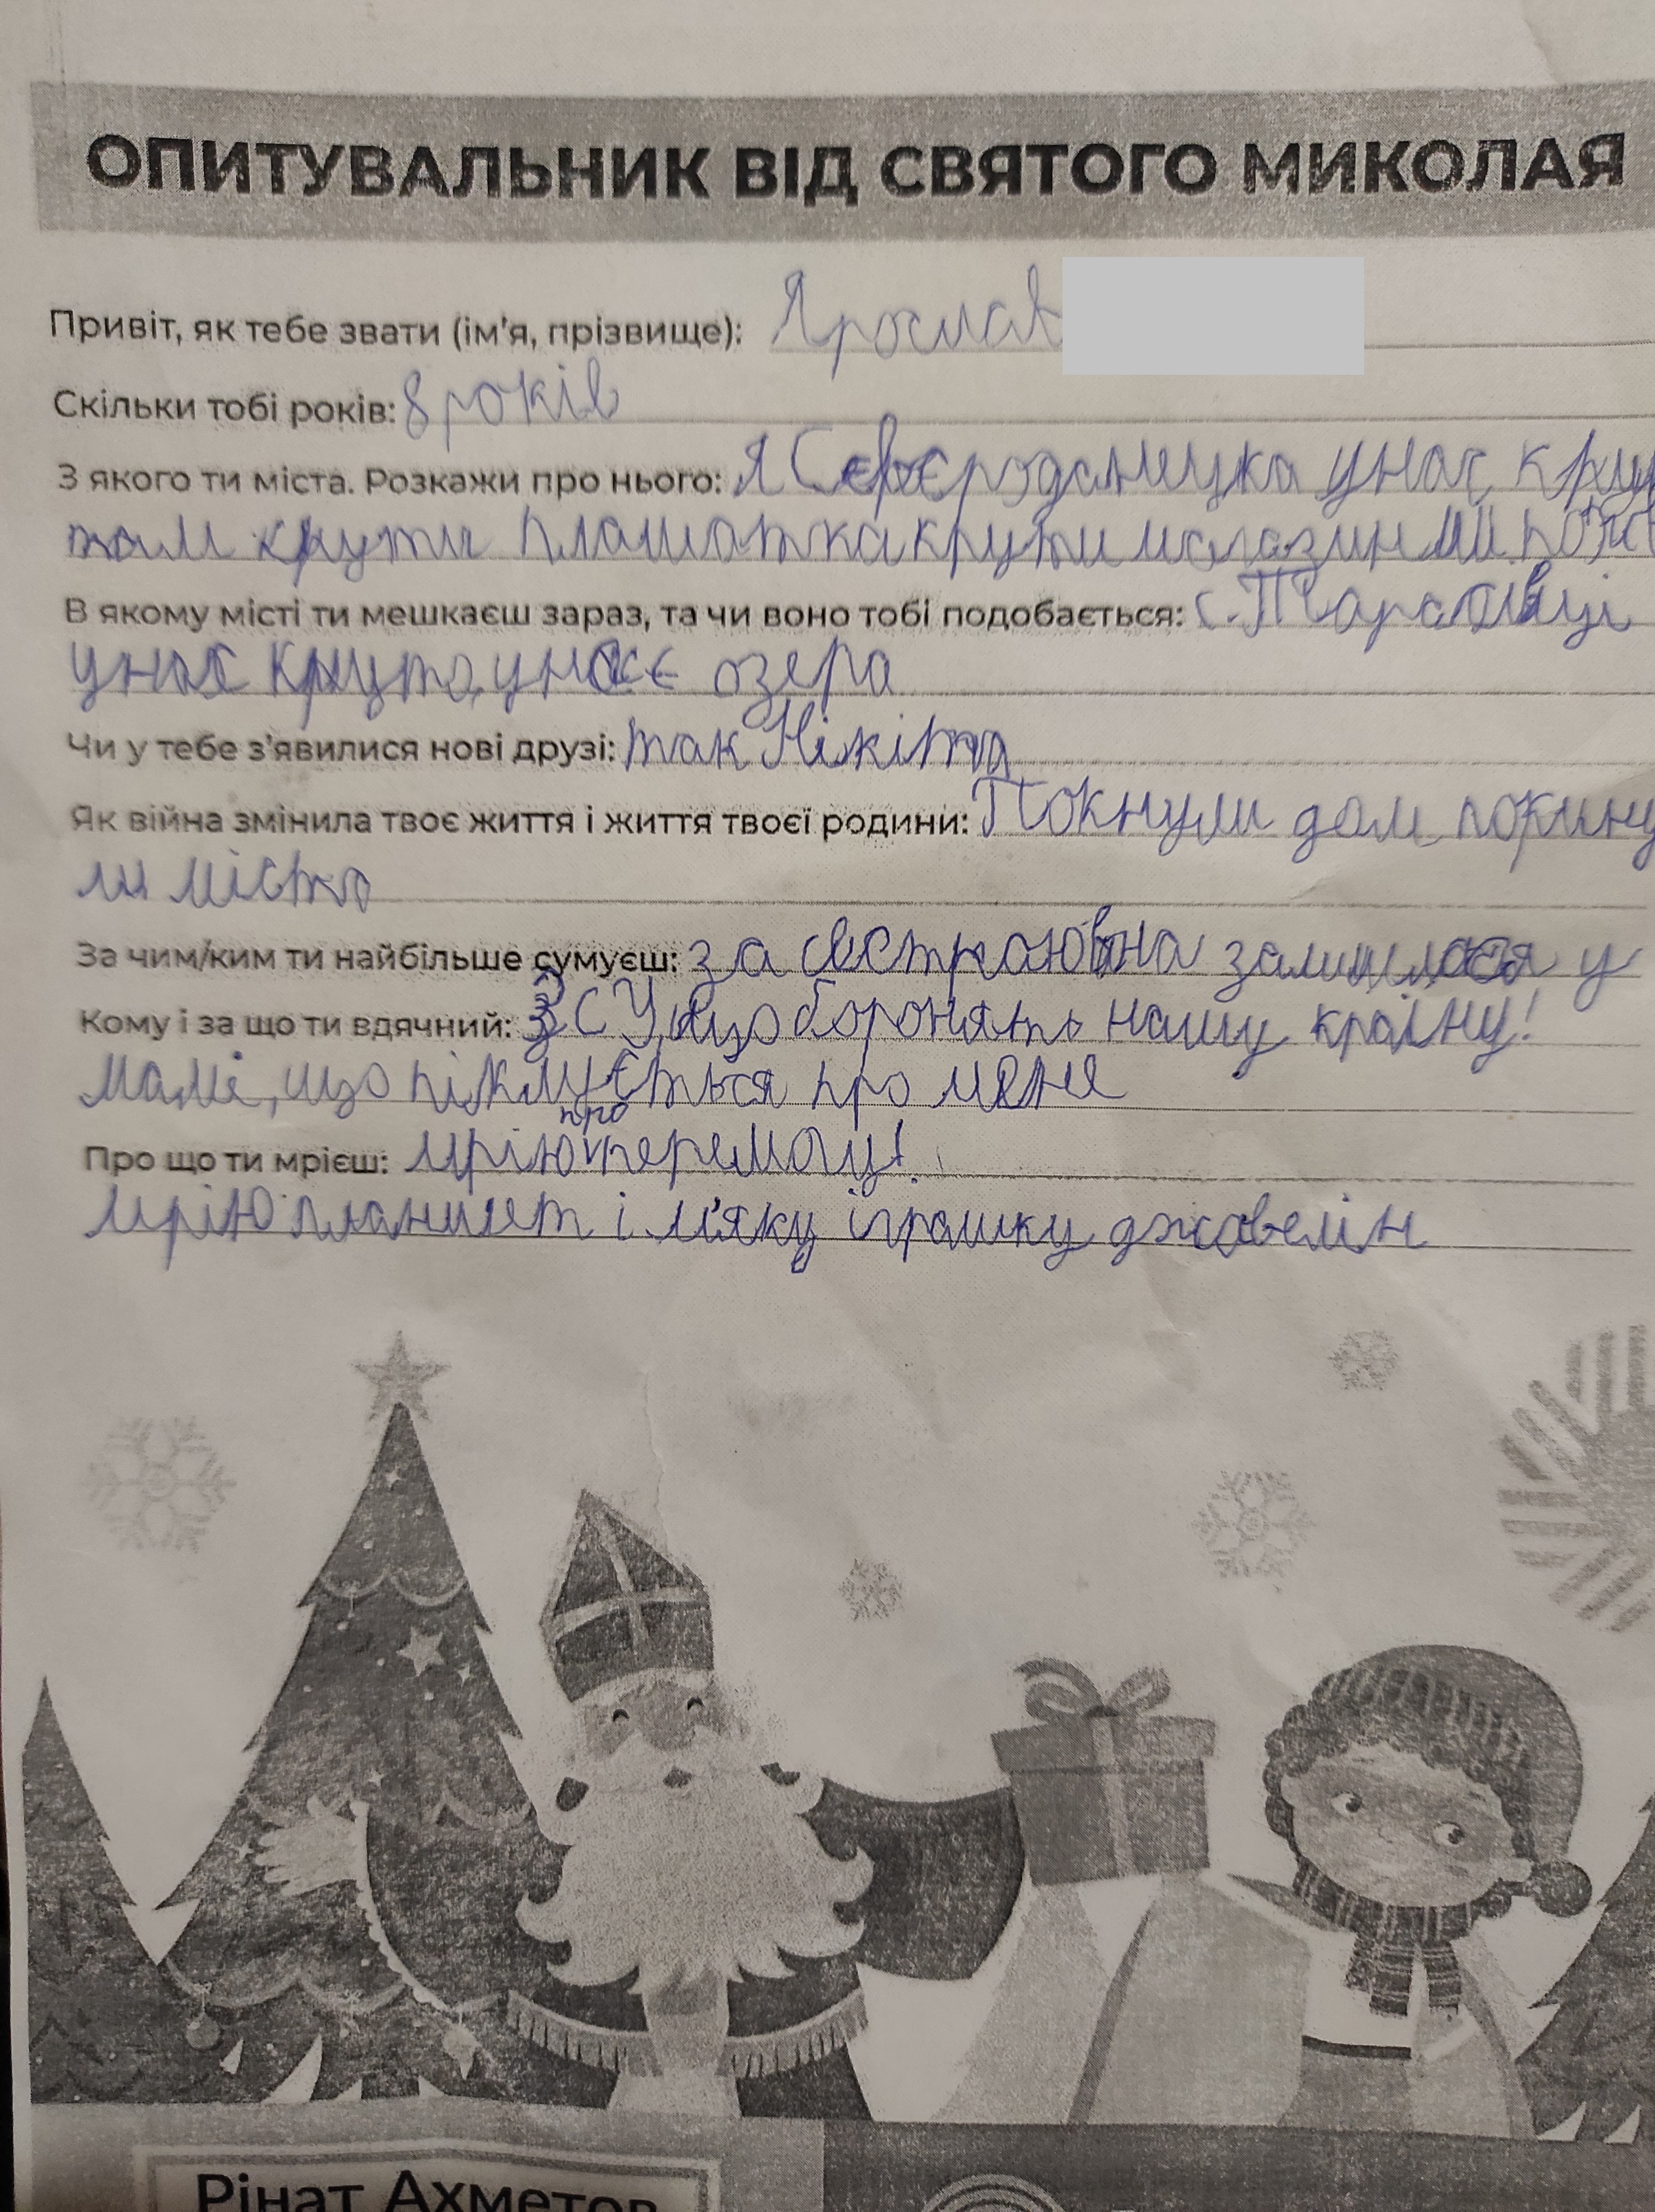 ОПИТУВАЛЬНИК ВІД СВЯТОГО МИКОЛАЯ
Привіт, як тебе звати (ім'я, прізвище): Ярослав
Скільки тобі років: 8 років
З якого ти міста. Розкажи про нього: Я Сєвєродонецка унас
там крути плашатка крути магазин
В якому місті ти мешкаєш зараз, та чи воно тобі подобається: с.
унас круто, унас є озера
Чи у тебе з'явилися нові друзі: так Нікіта
Як війна змінила твоє життя і життя твоєї родини: Покнули дом покину
ли місто
За чим/ким ти найбільше сумуєш: за сестраю вна залишилася у
Кому і за що ти вдячний: ЗСУ, що боронять нашу країну!
Мамі, що піклується про мене
Про що ти мрієш: мрію про перемогу!
мрію планшет і м'яку іграшку джавелін
Рінат Ахметов